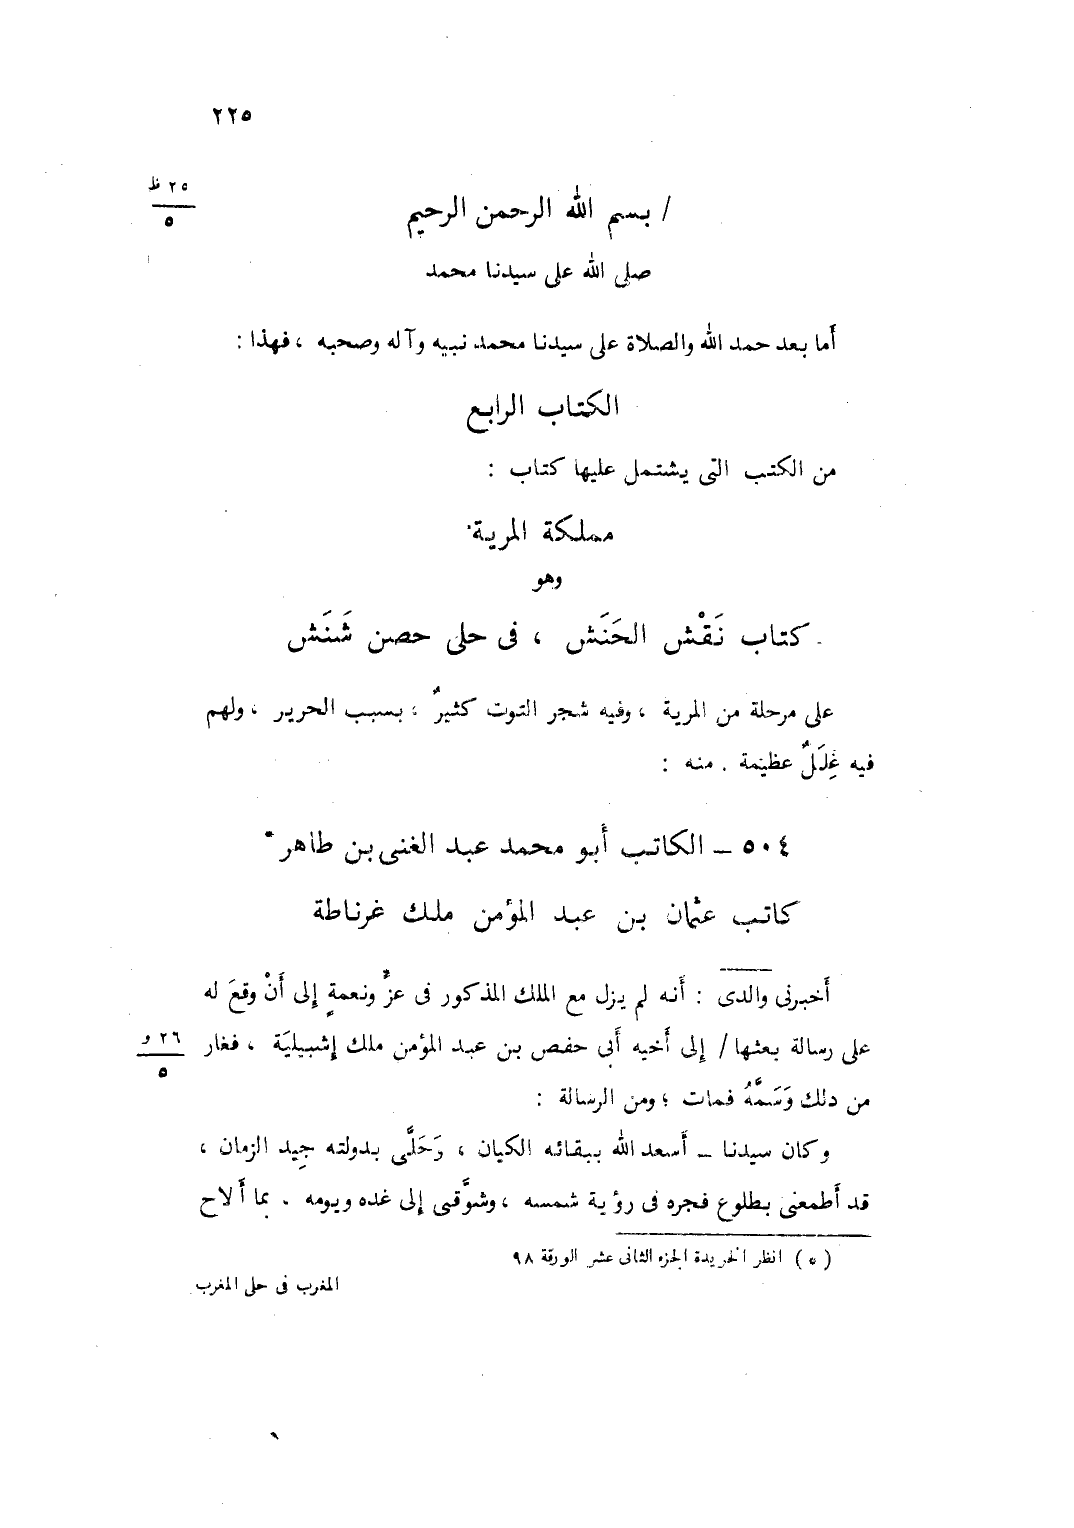 ٢٢٥
٢٥ ظ
٥
/ بسم الله الرحمن الرحيم
صلى الله على سيدنا محمد
أما بعد حمد الله والصلاة على سيدنا محمد نبيه وآله وصحبه ، فهذا :
الكتاب الرابع
من الكتب التى يشتمل عليها كتاب :
مملكة المرية
وهو
كتاب نَقْش الحَنَش ، فى حلى حصن شَنَش
على مرحلة من المرية ، وفيه شجر التوت كثيرٌ ؛ بسبب الحرير ، ولهم
فيه غِلَلٌ عظيمة . منه :
٥٠٤ – الكاتب أبو محمد عبد الغنى بن طاهر*
كاتب عثمان بن عبد المؤمن ملك غرناطة
أخبرنى والدى : أنه لم يزل مع الملك المذكور فى عزٍّ ونعمةٍ إلى أَنْ وقعَ له
على رسالة بعثها / إلى أخيه أبى حفص بن عبد المؤمن ملك إشبيليَة ، فغار
٢٦ و
٥
من ذلك وَسَمَّهُ فمات ؛ ومن الرسالة :
وكان سيدنا – أسعد الله ببقائه الكيان ، وَحَلَّى بدولته جِيد الزمان ،
قد أطمعنى بطلوع فجره فى رؤية شمسه ، وشوَّقنى إلى غده ويومه . بما ألاح
(*) انظر الخريدة الجزء الثانى عشر الورقة ٩٨
المغرب فى حلى المغرب